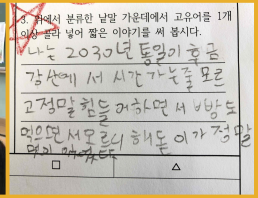 3. 위에서 분류한 낱말 가운데에서 고유어를 1개
이상 골라 넣어 짧은 이야기를 써 봅시다.
나는 2030년 통일이 후 금
강산에 서 시간 가는줄 모르
고 정말 힘들 어하면 서 빵도
먹으면 서 모르니 해돋 이가 정말
□ △